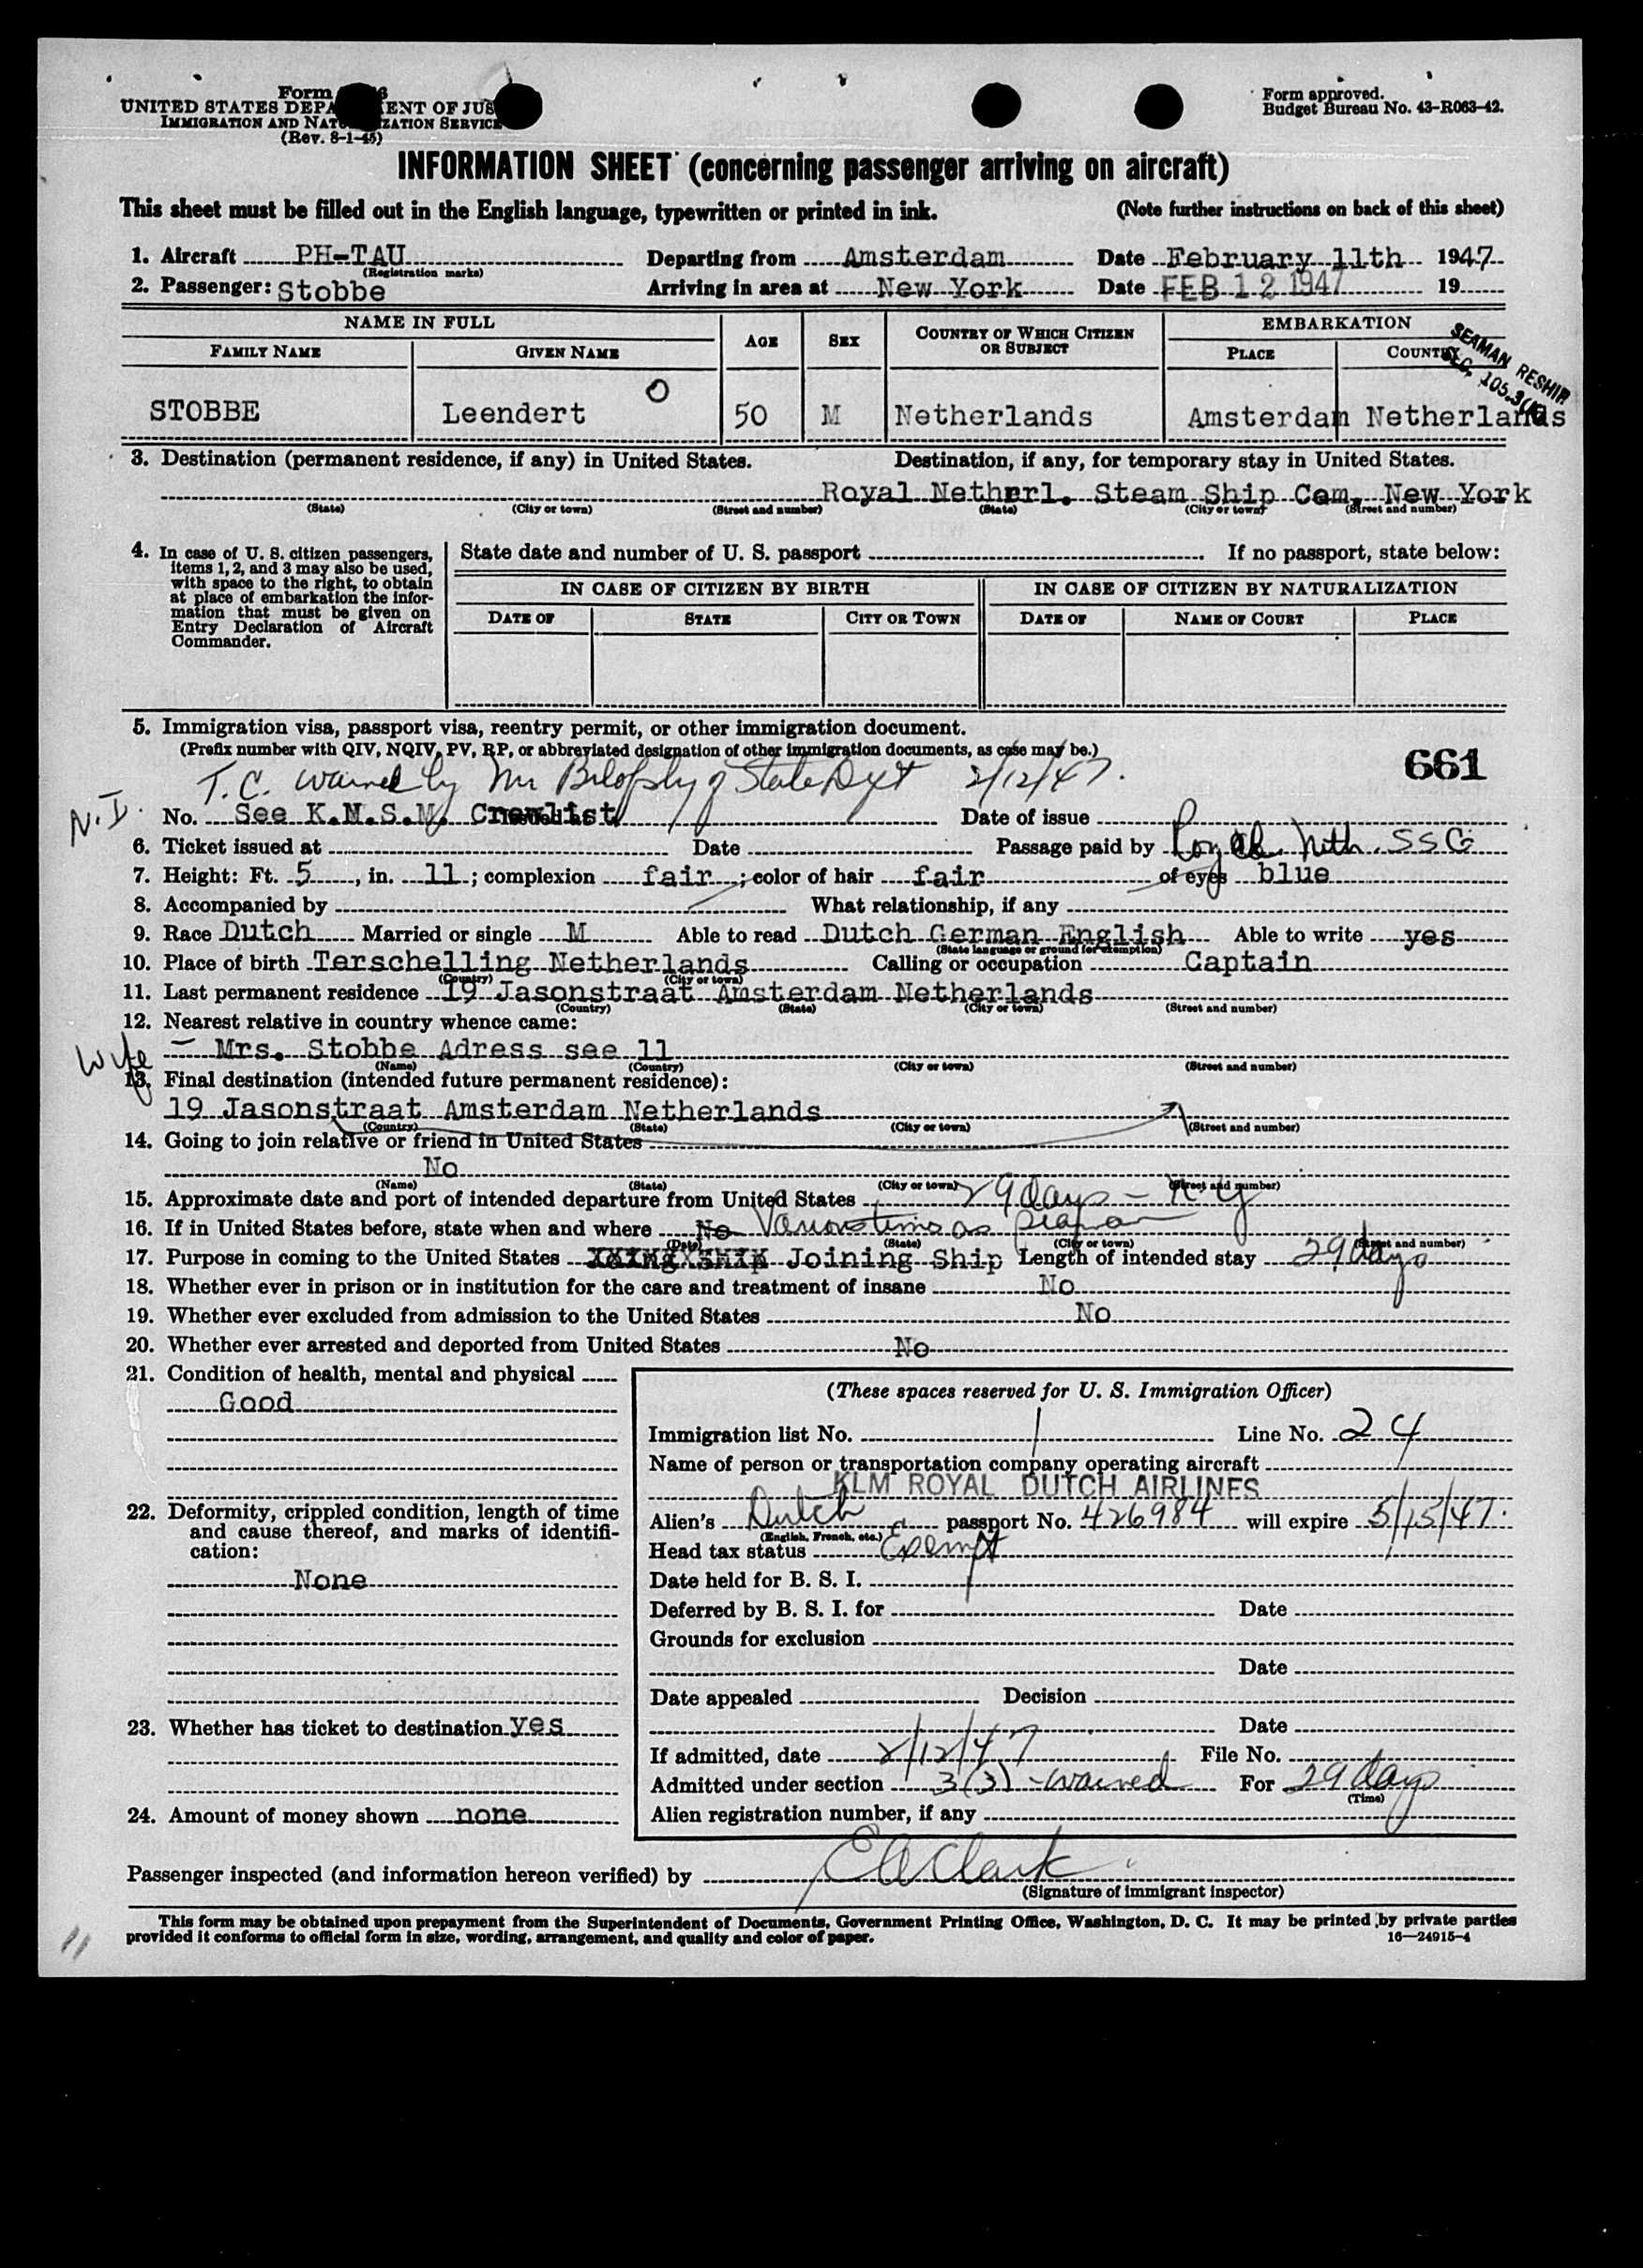 Form
UNITED STATES DEPA ENT OF JUS
IMMIGRATION AND NAT ZATION SERVICE
(Rev. 8-1-45)
Form approved.
Budget Bureau No. 43-R063-42.
INFORMATION SHEET (concerning passenger arriving on aircraft)
This sheet must be filled out in the English language, typewritten or printed in ink. (Note further instructions on back of this sheet)
1. Aircraft PH-TAU Departing from Amsterdam Date February 11th 1947
(Registration marks)
2. Passenger: Stobbe Arriving in area at New York Date FEB 12 1947 19
NAME IN FULL AGE SEX COUNTRY OF WHICH CITIZEN OR SUBJECT EMBARKATION
FAMILY NAME GIVEN NAME PLACE COUNTRY
SEAMAN RESHIP
SEC. 105.3
STOBBE Leendert 50 M Netherlands Amsterdam Netherlands
3. Destination (permanent residence, if any) in United States. Destination, if any, for temporary stay in United States.
Royal Netherl. Steam Ship Com, New York
(State) (City or town) (Street and number) (State) (City or town) (Street and number)
4. In case of U. S. citizen passengers, items 1, 2, and 3 may also be used, with space to the right, to obtain at place of embarkation the information that must be given on Entry Declaration of Aircraft Commander.
State date and number of U. S. passport If no passport, state below:
IN CASE OF CITIZEN BY BIRTH IN CASE OF CITIZEN BY NATURALIZATION
DATE OF STATE CITY OR TOWN DATE OF NAME OF COURT PLACE
5. Immigration visa, passport visa, reentry permit, or other immigration document.
(Prefix number with QIV, NQIV, PV, RP, or abbreviated designation of other immigration documents, as case may be.)
661
T.C. waived by Mr of State Dept 2/12/47.
N.I.
No. See K.N.S.M. Crewlist Date of issue
6. Ticket issued at Date Passage paid by Royal Neth. SSC
7. Height: Ft. 5, in. 11; complexion fair; color of hair fair of eyes blue
8. Accompanied by What relationship, if any
9. Race Dutch Married or single M Able to read Dutch German English Able to write yes
(State language or ground for exemption)
10. Place of birth Terschelling Netherlands Calling or occupation Captain
(Country) (City or town)
11. Last permanent residence 19 Jasonstraat Amsterdam Netherlands
(Country) (State) (City or town) (Street and number)
12. Nearest relative in country whence came:
Wife
Mrs. Stobbe Adress see 11
(Name) (Country) (City or town) (Street and number)
13. Final destination (intended future permanent residence):
19 Jasonstraat Amsterdam Netherlands
(Country) (State) (City or town) (Street and number)
14. Going to join relative or friend in United States
No
(Name) (State) (City or town) (Street and number)
15. Approximate date and port of intended departure from United States 29 days - N.Y
16. If in United States before, state when and where No Various times as seaman
(Date) (State) (City or town) (Street and number)
17. Purpose in coming to the United States Joining Ship Length of intended stay 29 days
18. Whether ever in prison or in institution for the care and treatment of insane No
19. Whether ever excluded from admission to the United States No
20. Whether ever arrested and deported from United States No
21. Condition of health, mental and physical
Good
22. Deformity, crippled condition, length of time and cause thereof, and marks of identification:
None
23. Whether has ticket to destination yes
24. Amount of money shown none
(These spaces reserved for U. S. Immigration Officer)
Immigration list No. 1 Line No. 24
Name of person or transportation company operating aircraft
KLM ROYAL DUTCH AIRLINES
Alien's Dutch passport No. 426984 will expire 5/15/47.
(English, French, etc.)
Head tax status Exempt
Date held for B. S. I.
Deferred by B. S. I. for Date
Grounds for exclusion
Date
Date appealed Decision
Date
If admitted, date 2/12/47 File No.
Admitted under section 3(3) - waived For 29 days
(Time)
Alien registration number, if any
Passenger inspected (and information hereon verified) by E A Clark
(Signature of immigrant inspector)
This form may be obtained upon prepayment from the Superintendent of Documents, Government Printing Office, Washington, D. C. It may be printed by private parties
provided it conforms to official form in size, wording, arrangement, and quality and color of paper. 16—24915-4
11